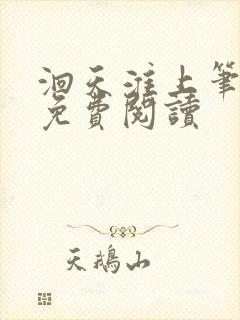 洄天淮上筆
免費閱讀
天鵝山